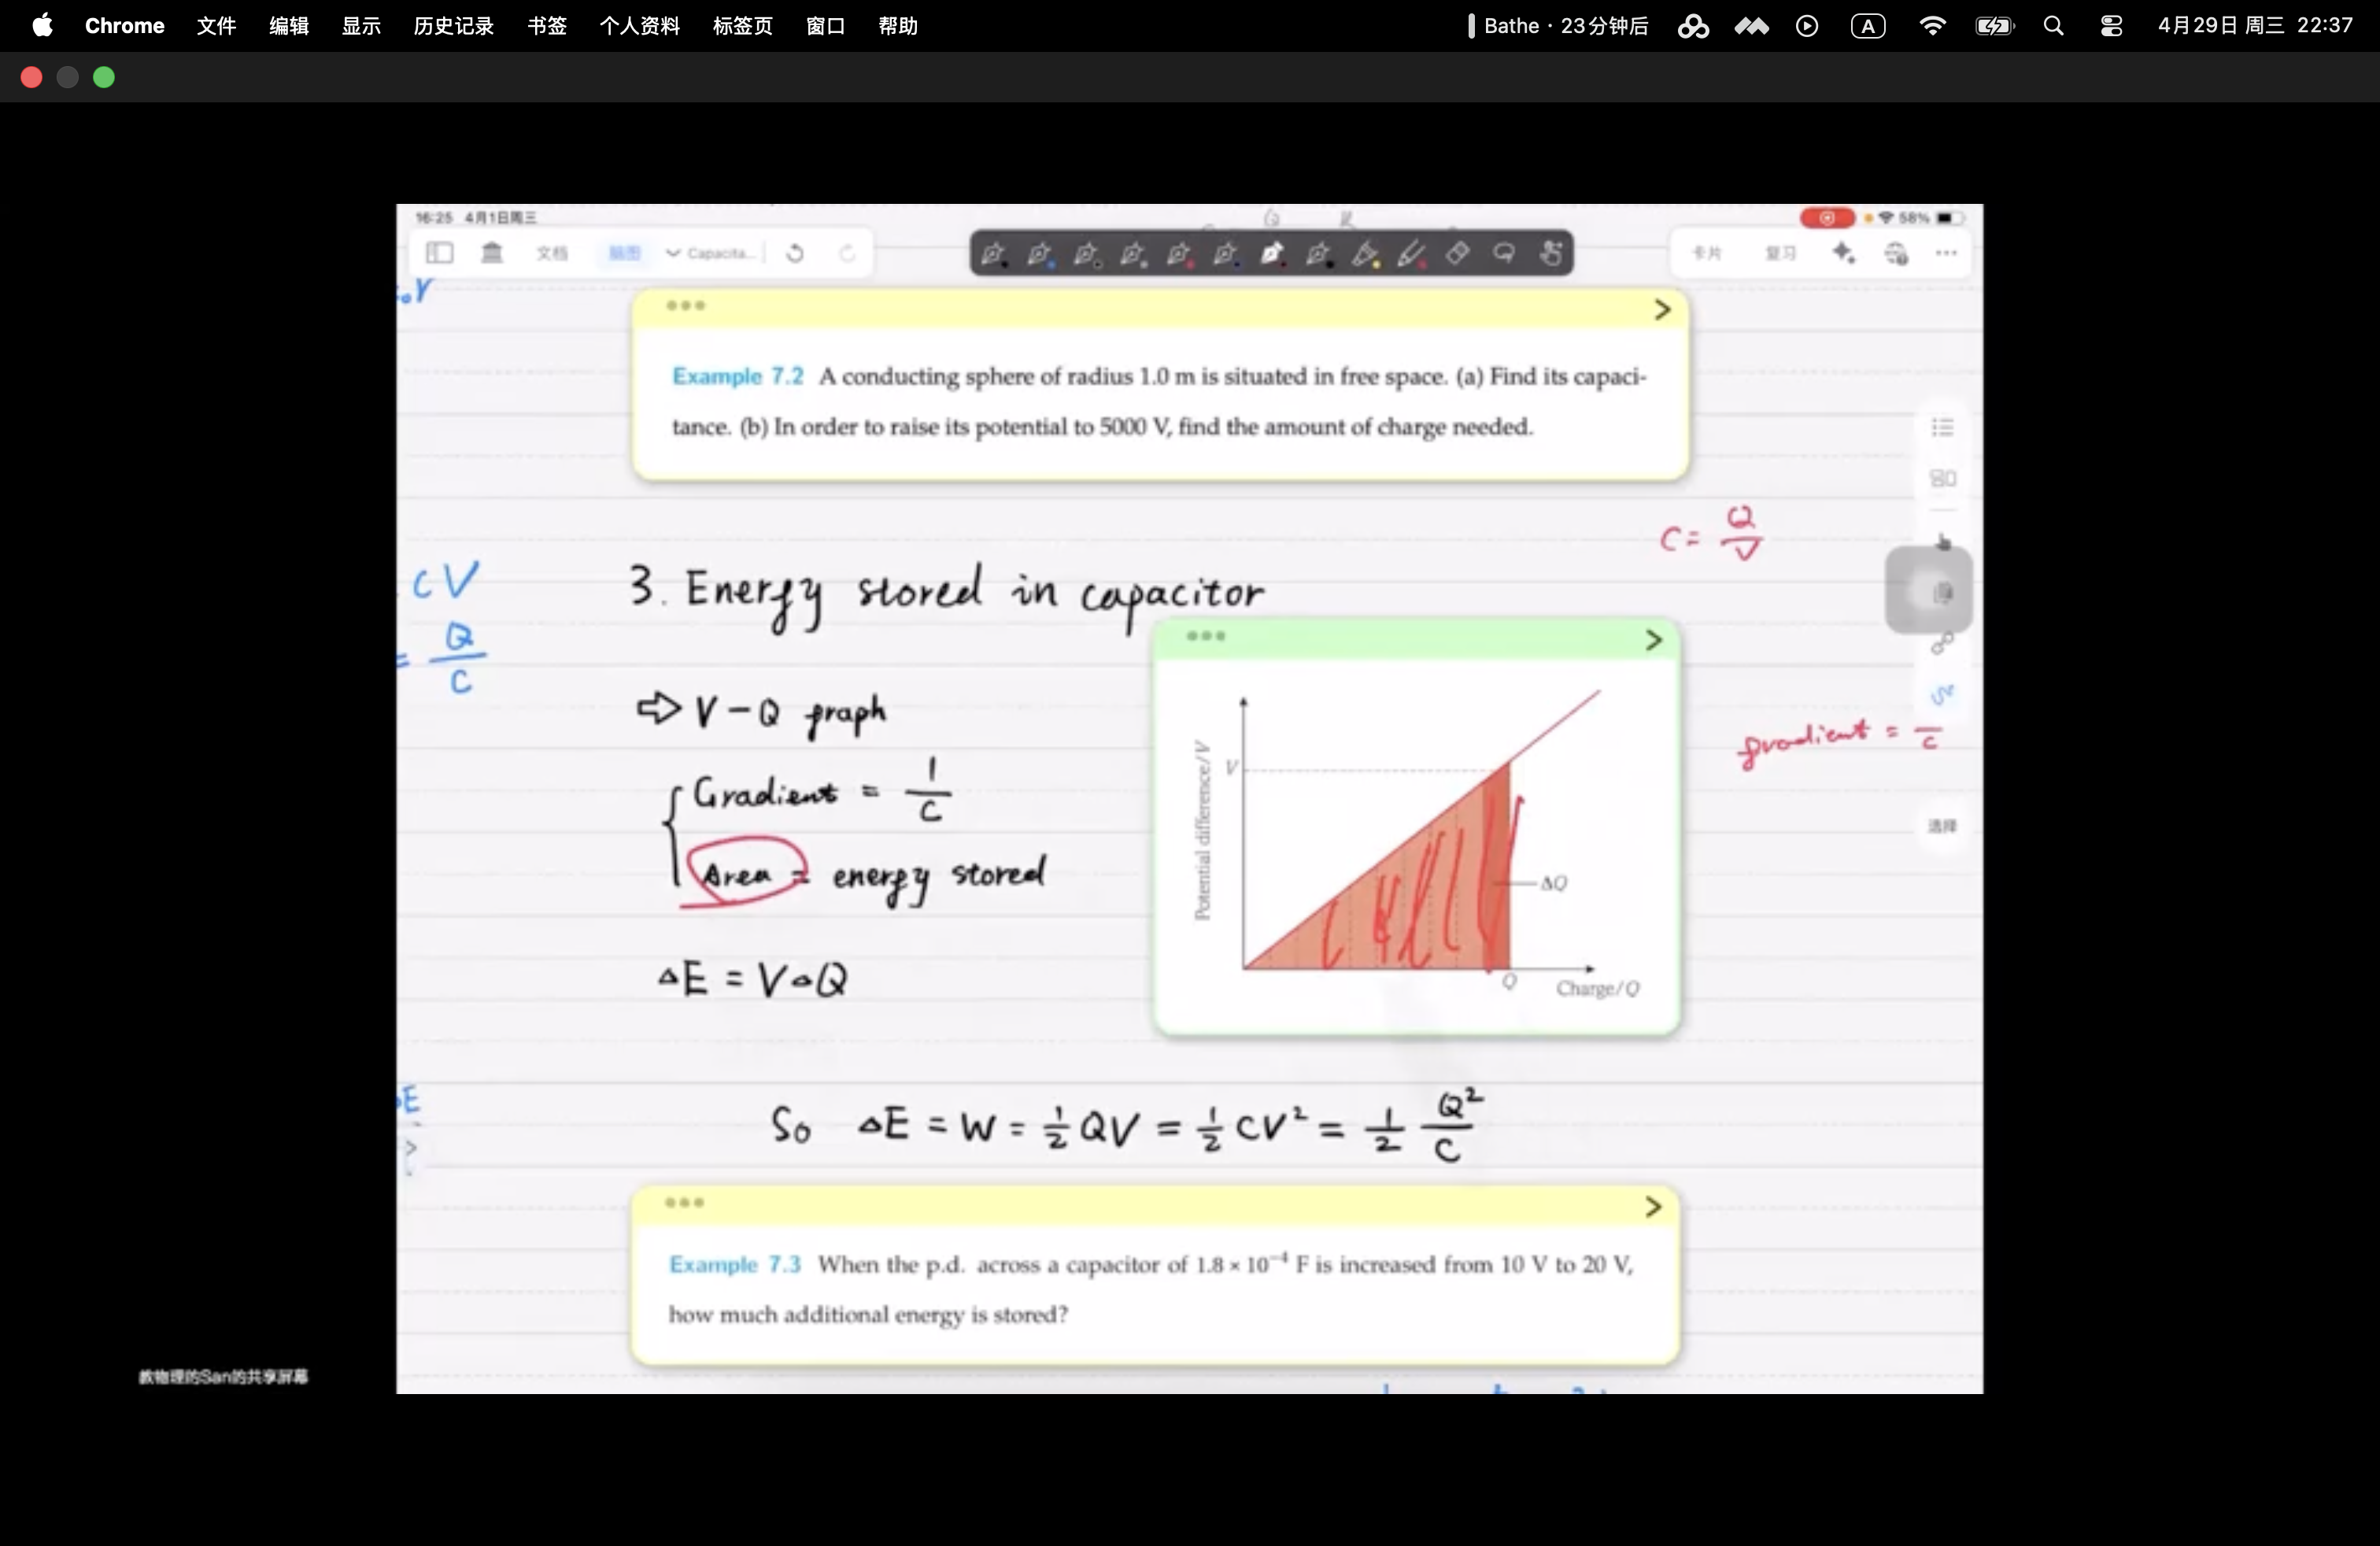 Chrome 文件 编辑 显示 历史记录 书签 个人资料 标签页 窗口 帮助 Bathe · 23分钟后 A 4月29日 周三 22:37
16:25 4月1日周三 58%
文档 脑图 Capacita... 卡片 复习
Example 7.2 A conducting sphere of radius 1.0 m is situated in free space. (a) Find its capaci-
tance. (b) In order to raise its potential to 5000 V, find the amount of charge needed.
C = Q/V
CV
= Q/C
3. Energy stored in capacitor
⇨ V - Q graph
Gradient = 1/C
Area = energy stored
ΔE = VΔQ
Potential difference/V
V
ΔQ
Q
Charge/Q
gradient = /C
选择
So ΔE = W = 1/2 QV = 1/2 CV² = 1/2 Q²/C
Example 7.3 When the p.d. across a capacitor of 1.8 × 10⁻⁴ F is increased from 10 V to 20 V,
how much additional energy is stored?
教物理的San的共享屏幕